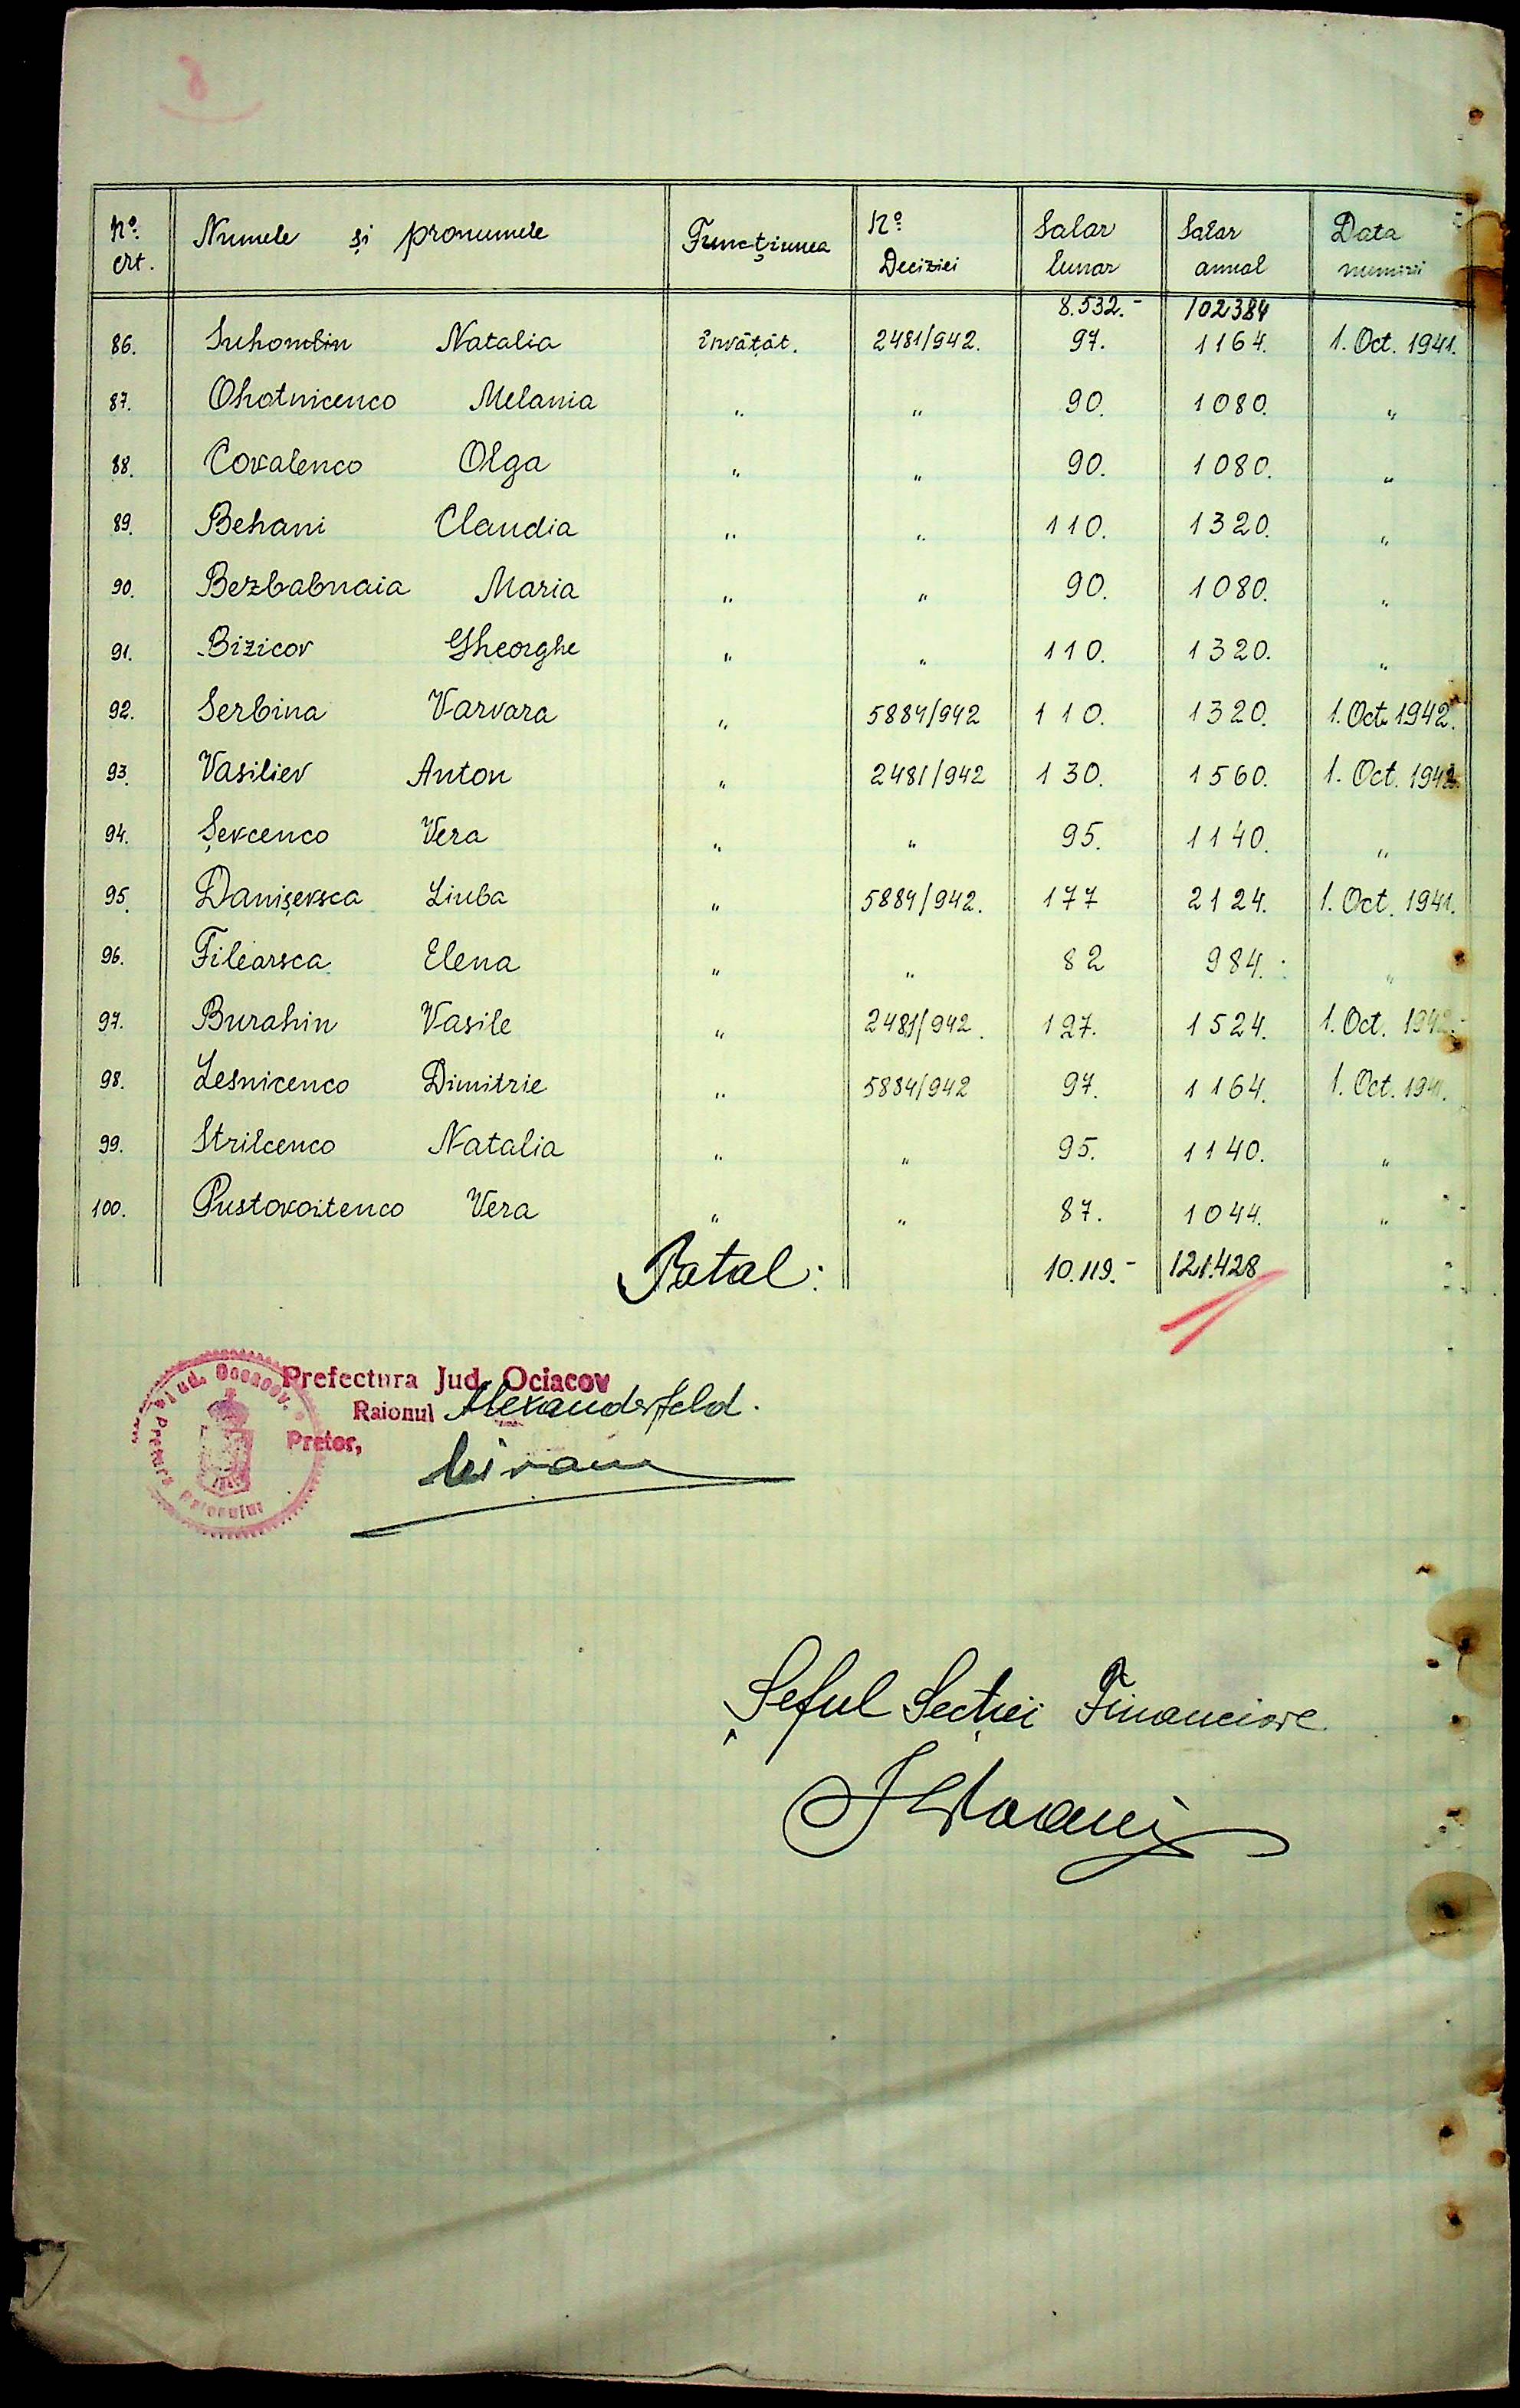 8
Nº. crt. Numele și pronumele Funcțiunea Nº Deciziei Salar lunar Salar anual Data numirii
8.532.- 102384
86. Suhomlin Natalia învățăt. 2481/942. 97. 1164. 1. Oct. 1941.
87. Ohotnicenco Melania " " 90. 1080. "
88. Covalenco Olga " " 90. 1080. "
89. Behani Claudia " " 110. 1320. "
90. Bezbabnaia Maria " " 90. 1080. "
91. Bizicov Gheorghe " " 110. 1320. "
92. Serbina Varvara " 5884/942 110. 1320. 1. Oct. 1942.
93. Vasiliev Anton " 2481/942 130. 1560. 1. Oct.
94. Șevcenco Vera " " 95. 1140. "
95. Danișevsca Liuba " 5884/942. 177 2124. 1. Oct. 1941.
96. Filearsca Elena " " 82 984. "
97. Burahin Vasile " 2481/942. 127. 1524. 1. Oct. 1942.
98. Lesnicenco Dimitrie " 5884/942 97. 1164. 1. Oct. 1941.
99. Strilcenco Natalia " " 95. 1140. "
100. Pustovoitenco Vera " " 87. 1044. "
Total: 10.119.- 121.428
Prefectura Jud. Ociacov
Raionul Alexanderfeld.
Pretor,
Șeful Secției Financiare